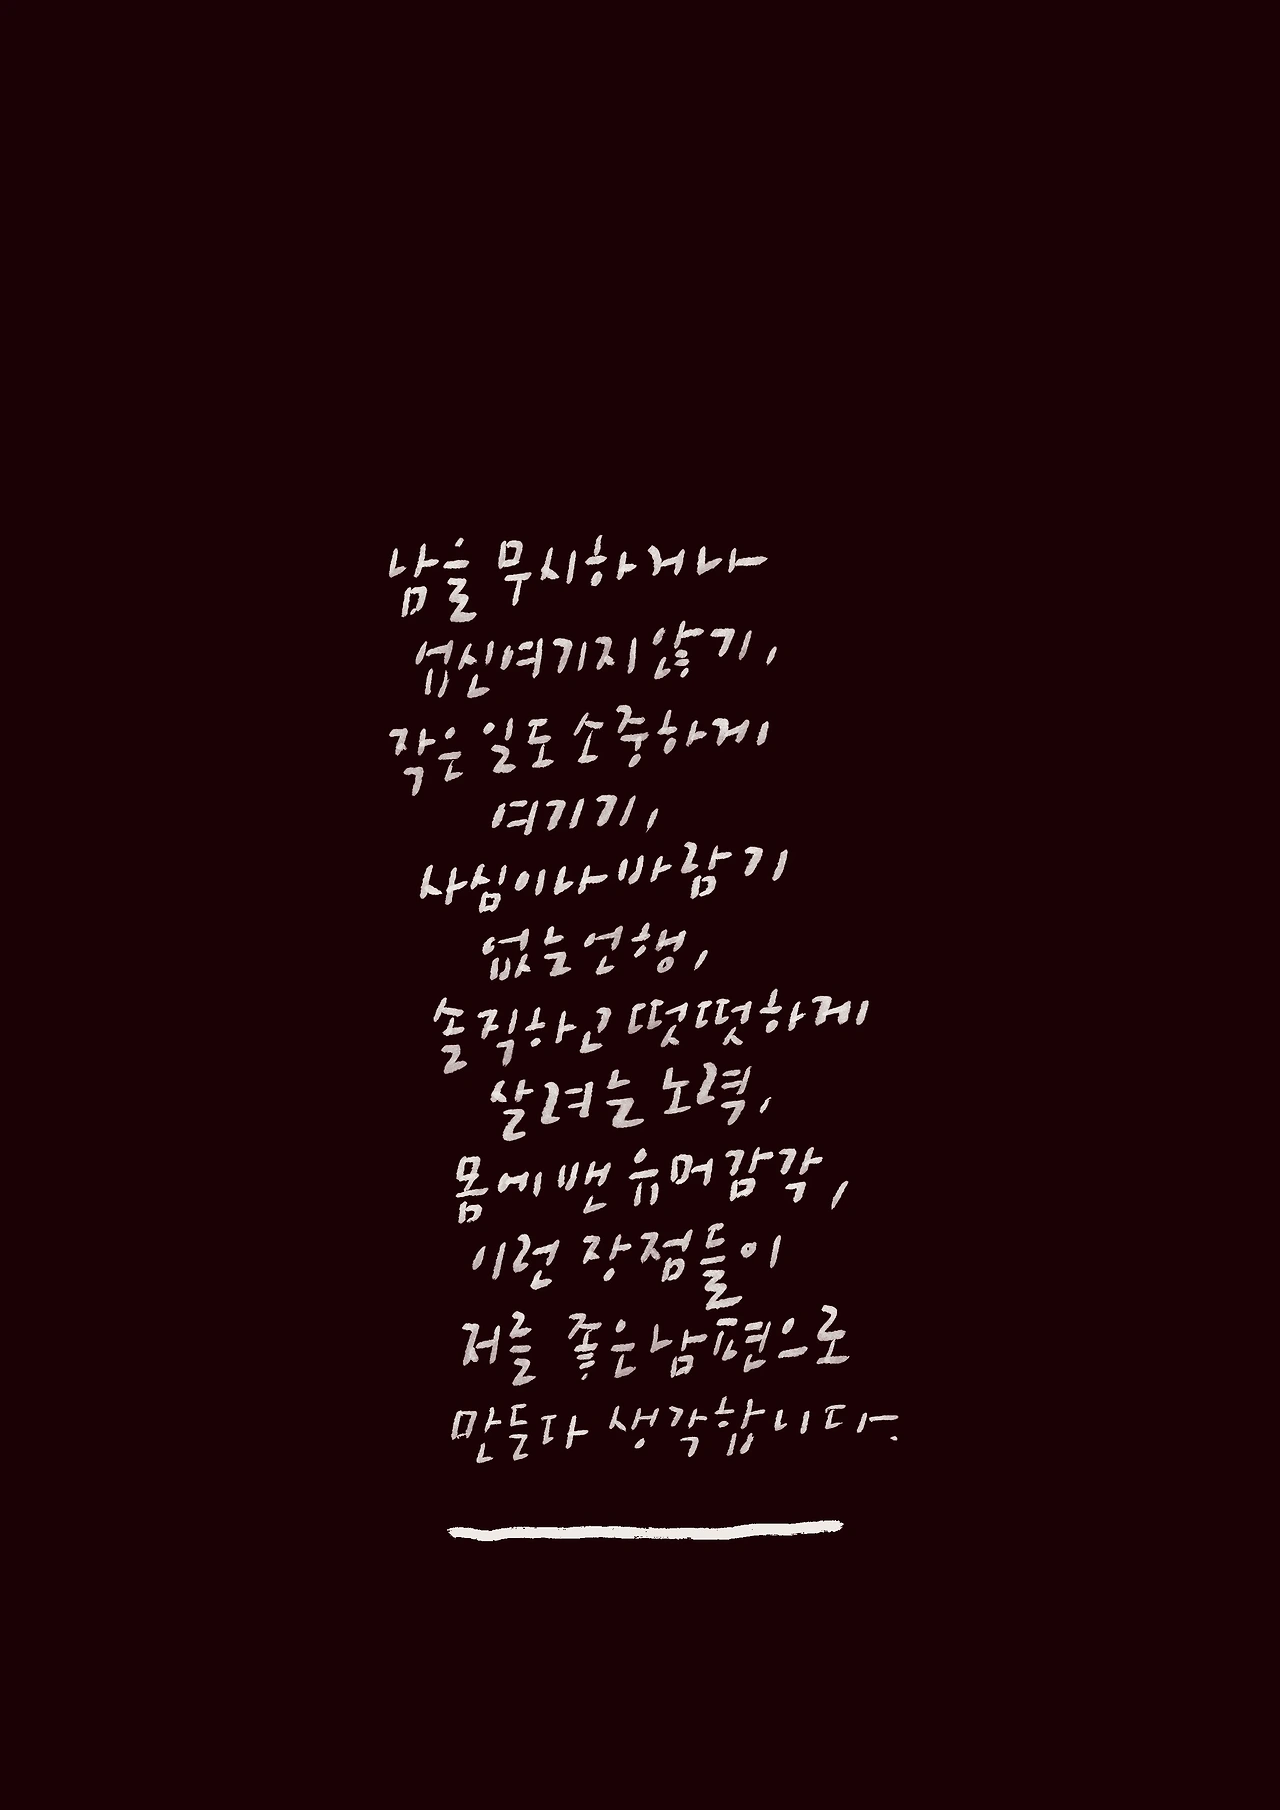 남을 무시하거나
업신여기지 않기,
작은 일도 소중하게
여기기,
사심이나 바람기
없는 언행,
솔직하고 떳떳하게
살려는 노력,
몸에 밴 유머감각,
이런 장점들이
저를 좋은 남편으로
만든다 생각합니다.